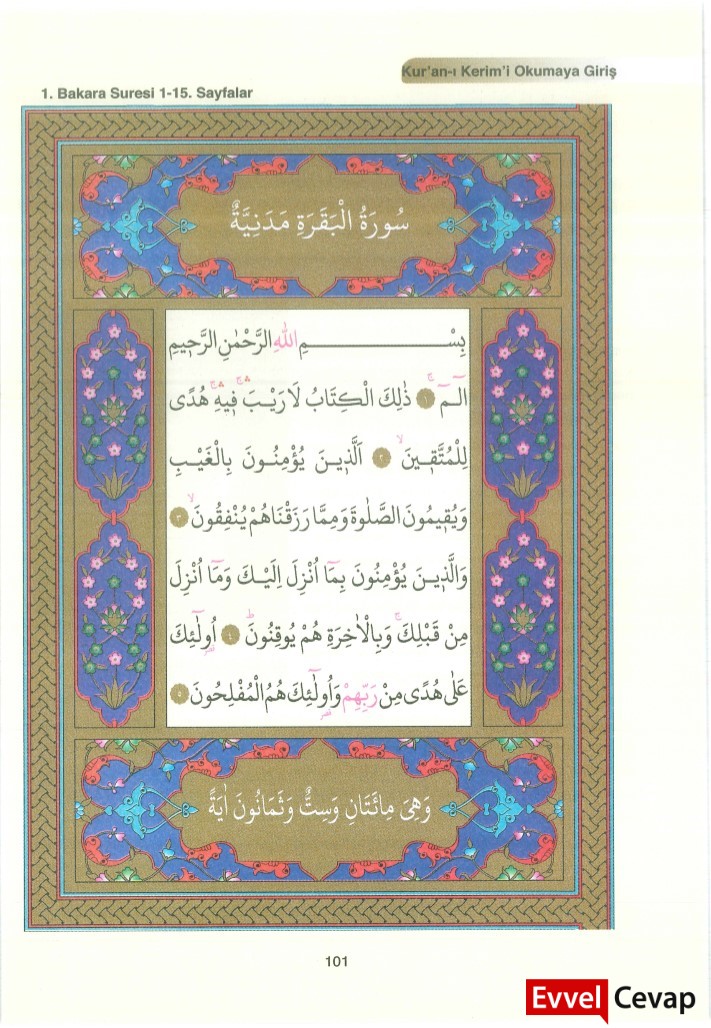 Kur'an-ı Kerim'i Okumaya Giriş
1. Bakara Suresi 1-15. Sayfalar
سُورَةُ الْبَقَرَةِ مَدَنِيَّةٌ
بِسْمِ اللّٰهِ الرَّحْمٰنِ الرَّحٖيمِ
الٓمٓ ۚ ﴿١﴾ ذٰلِكَ الْكِتَابُ لَا رَيْبَ ۛ فٖيهِ ۛ هُدًى
لِلْمُتَّقٖينَ ۙ ﴿٢﴾ اَلَّذٖينَ يُؤْمِنُونَ بِالْغَيْبِ
وَيُقٖيمُونَ الصَّلٰوةَ وَمِمَّا رَزَقْنَاهُمْ يُنْفِقُونَ ۙ ﴿٣﴾
وَالَّذٖينَ يُؤْمِنُونَ بِمَٓا اُنْزِلَ اِلَيْكَ وَمَٓا اُنْزِلَ
مِنْ قَبْلِكَ ۚ وَبِالْاٰخِرَةِ هُمْ يُوقِنُونَ ۜ ﴿٤﴾ اُولٰٓئِكَ
عَلٰى هُدًى مِنْ رَبِّهِمْ وَاُولٰٓئِكَ هُمُ الْمُفْلِحُونَ ﴿٥﴾
وَهِىَ مِائَتَانِ وَسِتٌّ وَثَمَانُونَ اٰيَةً
101
Evvel Cevap